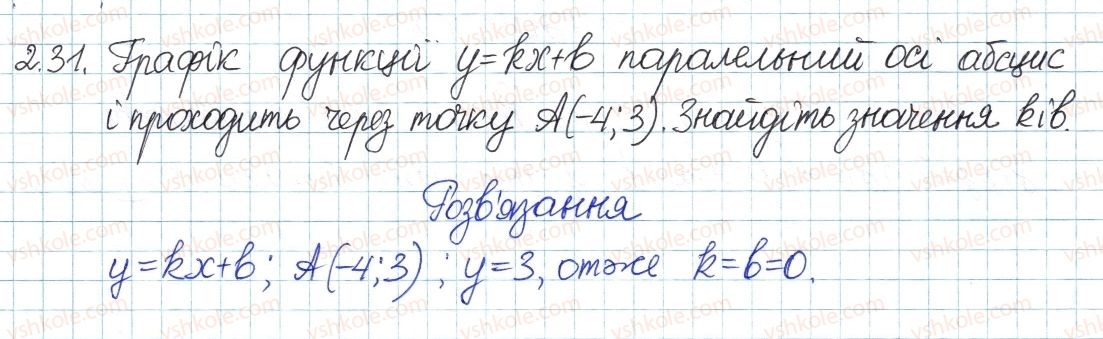 2.31. Графік функції y=kx+b паралельний осі абсцис
і проходить через точку A(-4;3). Знайдіть значення k і b.
Розв'язання
y=kx+b; A(-4;3); y=3, отже k=b=0.